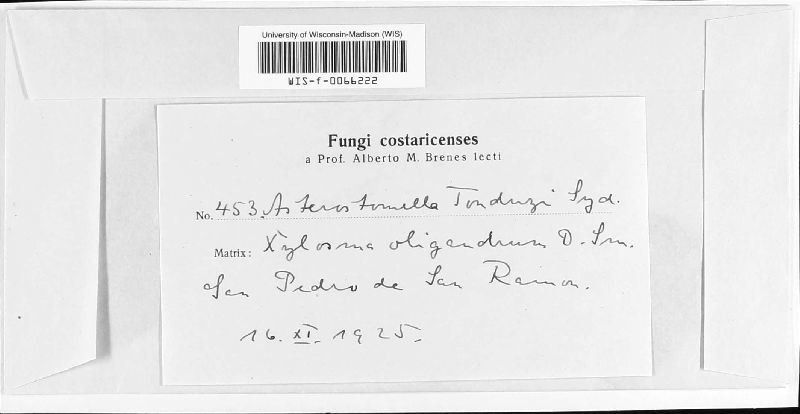 University of Wisconsin-Madison (WIS)
WIS-f-0066222
Fungi costaricenses
a Prof. Alberto M. Brenes lecti
No. 453. Asterostomella Tonduzi Syd.
Matrix: Xylosma oligandrum D. Sm.
San Pedro de San Ramon.
16. XI. 1925.